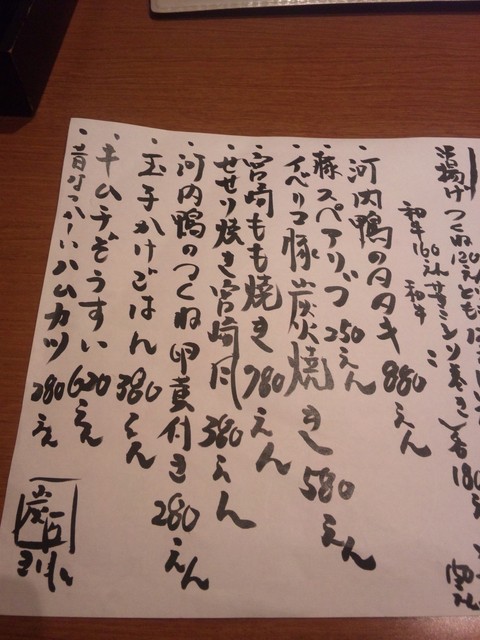 串揚げ つくね120
和牛160えん
和牛
・河内鴨のタタキ 880えん
・豚スペアリブ 250えん
・イベリコ豚炭火焼き 580えん
・宮崎もも焼き 780えん
・せせり焼き宮崎風 380えん
・河内鴨のつくね卵黄付き 280えん
・玉子かけごはん 380えん
・キムチぞうすい 620えん
・昔なつかしいハムカツ 280えん